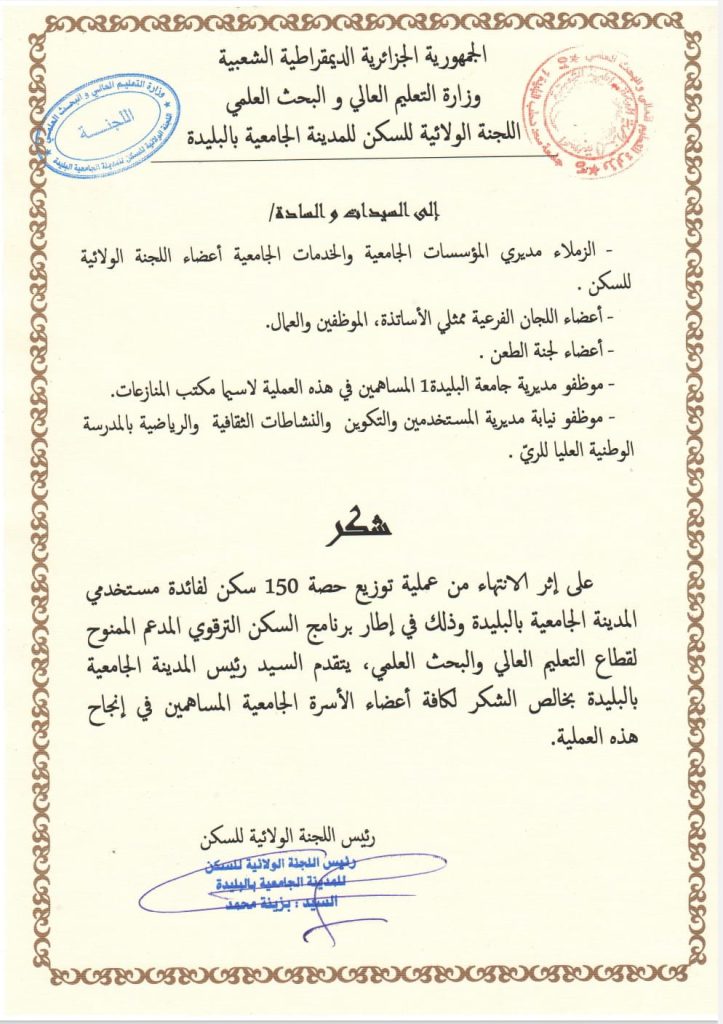 الجمهورية الجزائرية الديمقراطية الشعبية
وزارة التعليم العالي و البحث العلمي
اللجنة الولائية للسكن للمدينة الجامعية بالبليدة
وزارة التعليم العالي و البحث العلمي
اللجنــــة
اللجنة الولائية للسكن للمدينة الجامعية البليدة
إلى السيدات و السادة/
- الزملاء مديري المؤسسات الجامعية والخدمات الجامعية أعضاء اللجنة الولائية
للسكن .
- أعضاء اللجان الفرعية ممثلي الأساتذة، الموظفين والعمال.
- أعضاء لجنة الطعن .
- موظفو مديرية جامعة البليدة1 المساهمين في هذه العملية لاسيما مكتب المنازعات.
- موظفو نيابة مديرية المستخدمين والتكوين والنشاطات الثقافية والرياضية بالمدرسة
الوطنية العليا للريّ .
شكر
على إثر الانتهاء من عملية توزيع حصة 150 سكن لفائدة مستخدمي
المدينة الجامعية بالبليدة وذلك في إطار برنامج السكن الترقوي المدعم الممنوح
لقطاع التعليم العالي والبحث العلمي، يتقدم السيد رئيس المدينة الجامعية
بالبليدة بخالص الشكر لكافة أعضاء الأسرة الجامعية المساهمين في إنجاح
هذه العملية.
رئيس اللجنة الولائية للسكن
رئيس اللجنة الولائية للسكن
للمدينة الجامعية بالبليدة
السيد : بزينة محمد